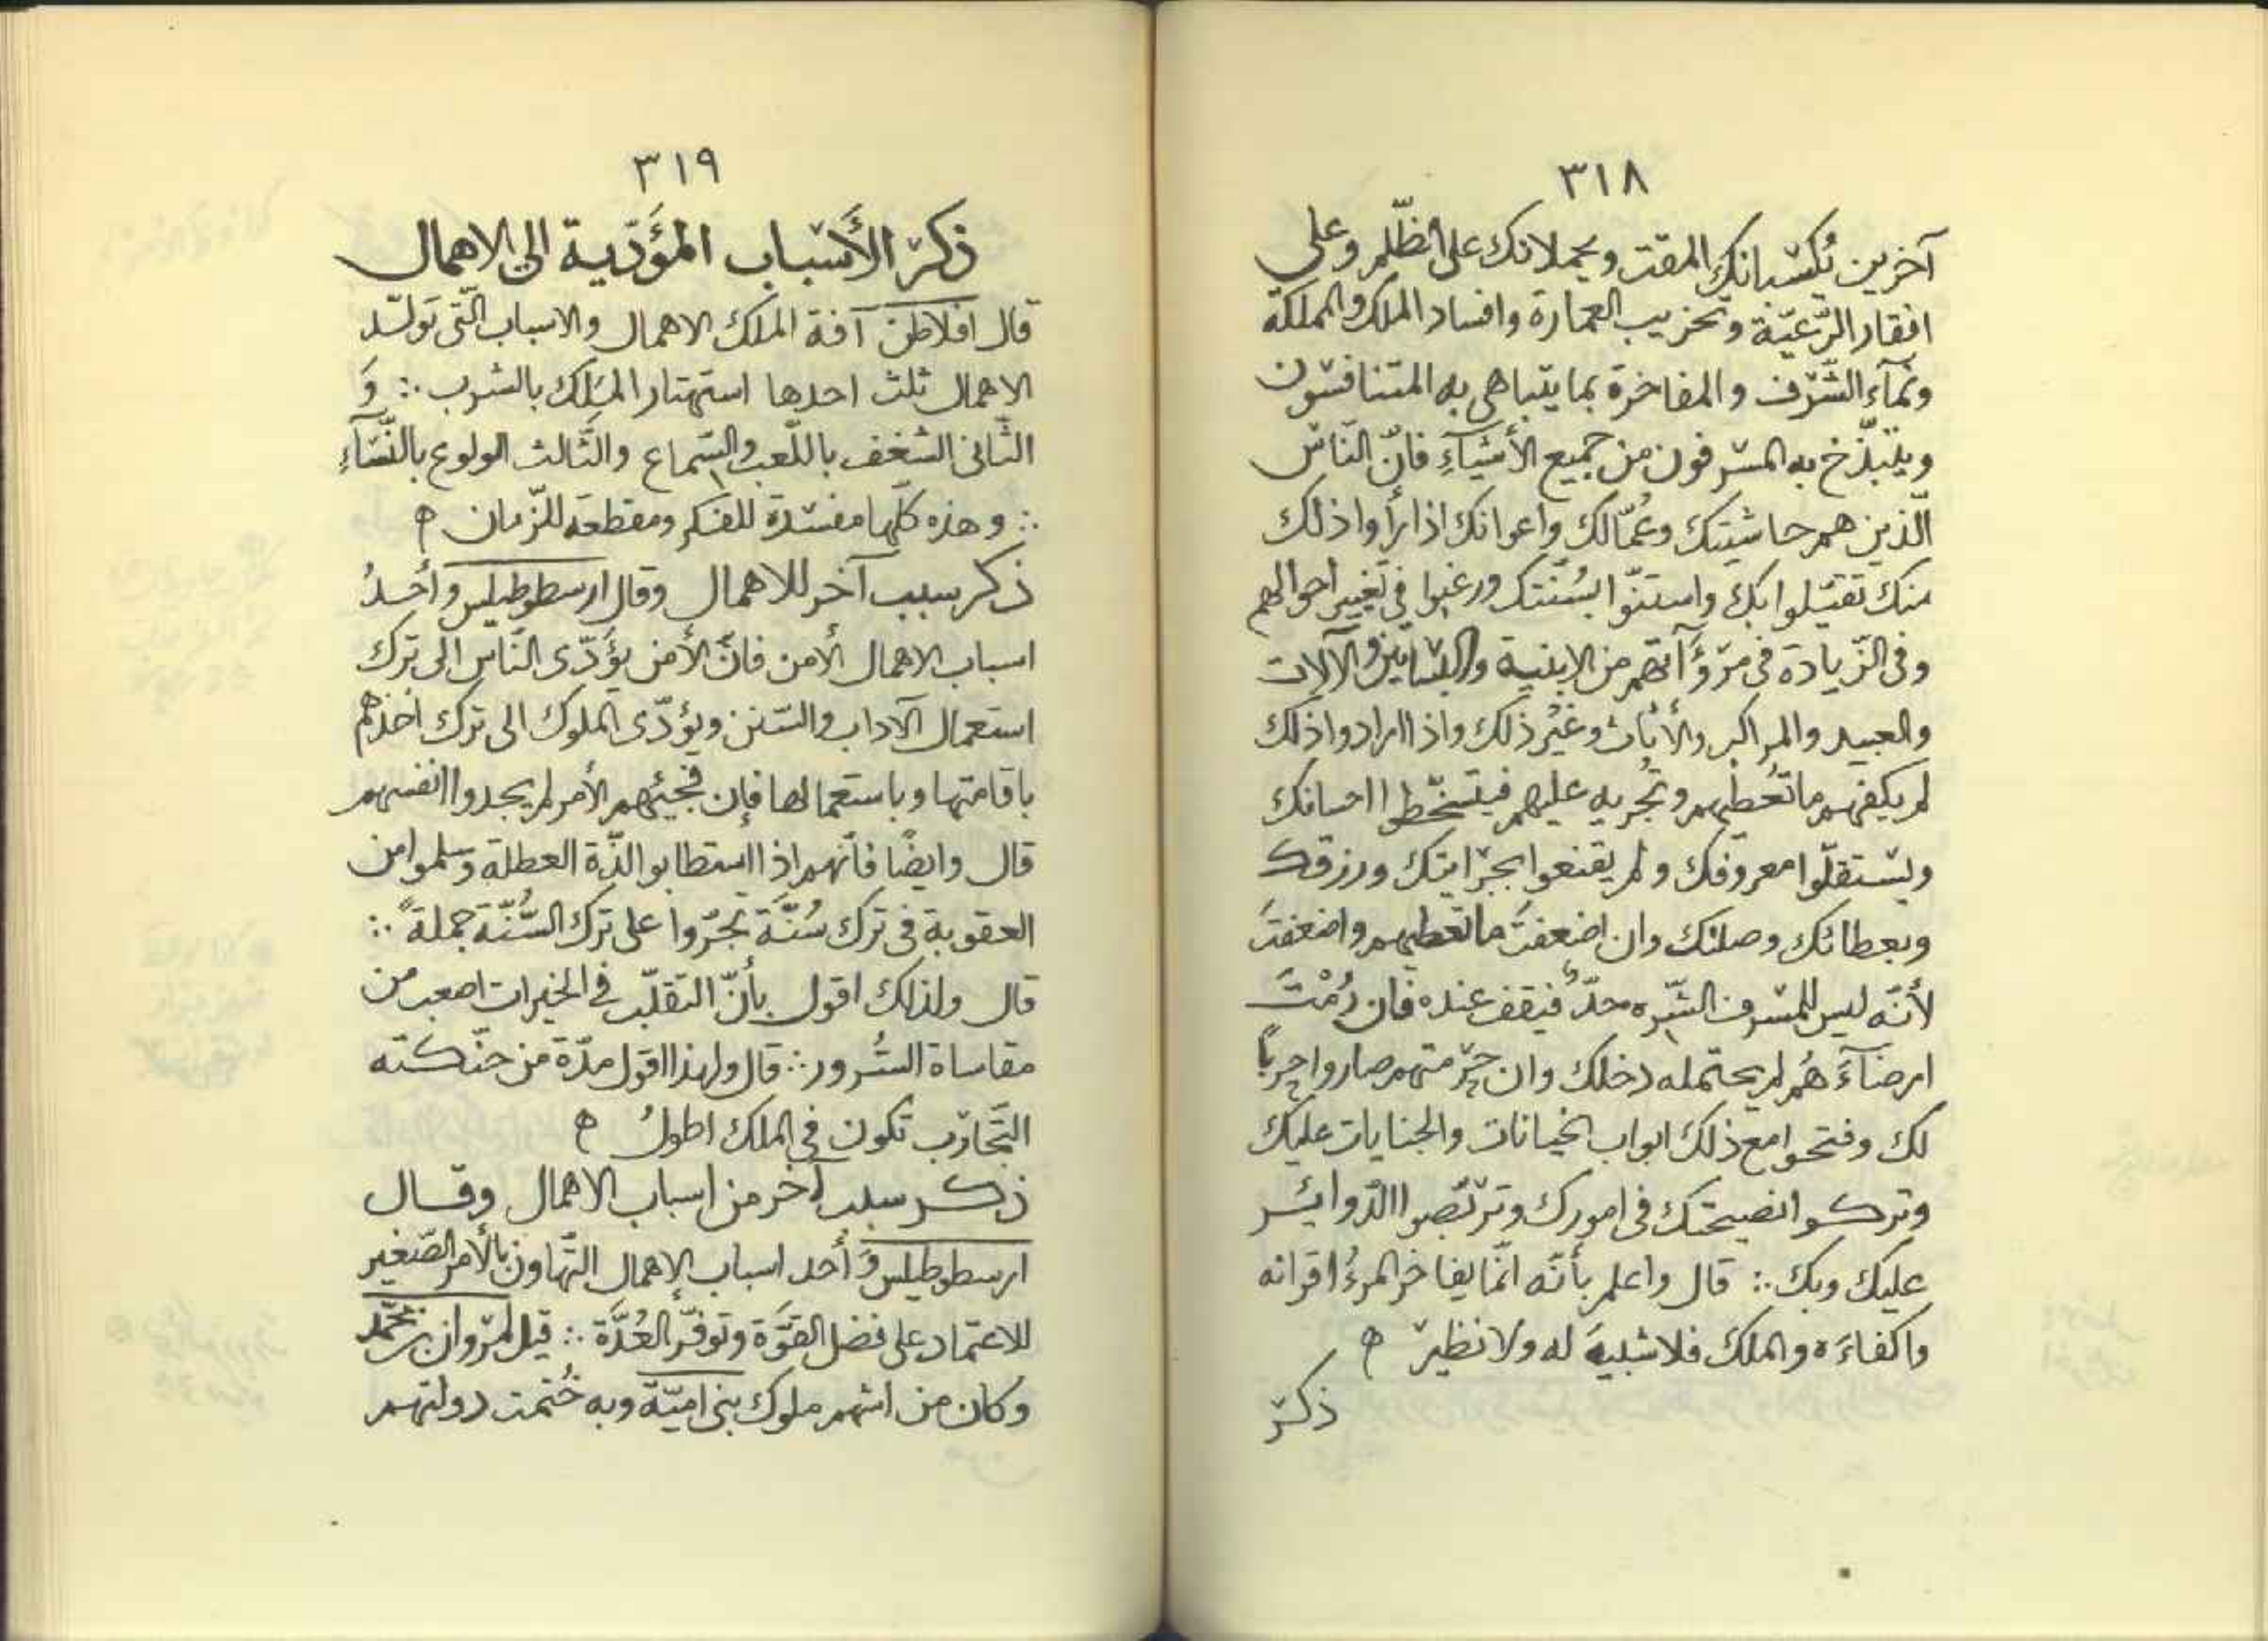 ٣١٨
آخرين يُكسبانك المقت ويحملانك على الظّلم وعلى
افقار الرّعيّة وتخريب العمارة وافساد الملك والمملكة
وهمآء الشّرف والمفاخرة بما يتباهى به المتنافسون
ويتبذّخ به المسرفون من جميع الأشيآءِ فانّ النّاس
الّذين هم حاشيتك وعُمّالك واعوانك اذا رأوا ذلك
منك تقيّلوا بك واستنّوا بسُنّتك ورغبوا في تغيير احوالهم
وفى الزّيادة فى مرؤآتهم من الابنية والبساتين والآلات
والعبيد والمراكب والأثاث وغير ذلك واذا ارادوا ذلك
لم يكفهم ما تُعطيهم وتُجريه عليهم فيتسخّطوا احسانك
ويستقلّوا معروفك ولم يقنعوا بجرايتك ورزقك
وبعطائك وصلتك وان اضعفتَ ما تعطيهم واضعفتَ
لأنّه ليس للمسرف الشّره حدٌّ فيقف عنده فان رُمْتَ
ارضآءَ هُم لم يحتمله دخلك وان حرمتهم صاروا حرباً
لك وفتحوا مع ذلك ابواب الخيانات والجنايات عليك
وتركوا نصيحتك فى امورك وتربّصوا الدّوائر
عليك وبك ∴ قال واعلم بأنّه انّما يفاخر المرءُ اقرانه
واكفاءَه والملك فلا شبيهَ له ولا نظير ه
ذكر
٣١٩
ذكر الأسباب المؤدّية الى الاهمال
قال افلاطن آفة الملك الاهمال والاسباب الّتى تولّد
الاهمال ثلث احدها استهتار الملك بالشرب ∴ وَ
الثّانى الشغف باللّعب والسّماع والثّالث الولوع بالنّسآءِ
∴ وهذه كلّها مفسدة للفكر ومقطعة للزّمان ه
ذكر سبب آخر للاهمال وقال ارسطوطيلس وأحدُ
اسباب الاهمال الأمن فانّ الأمن يؤدّى النّاس الى ترك
استعمال الآداب والسّنن ويؤدّى الملوك الى ترك اخذهم
باقامتها وباستعمالها فإن فجئهم الأمر لم يجدوا انفسهم
قال وايضًا فانّهم اذا استطابوا لذّة العطلة وسلموا من
العقوبة فى ترك سُنّة تجرّوا على ترك السُّنّة جملةً ∴
قال ولذلك اقول بأنّ التقلّب في الخيرات اصعب من
مقاساة الشُرور ∴ قال ولهذا اقول مدّة من حنّكته
التّجارب تكون في الملك اطولُ ه
ذكر سبب آخر من اسباب الاهمال وقال
ارسطوطيلس وَأحد اسباب الإهمال التّهاون بالأمر الصّغير
للاعتماد على فضل القوّة وتوفّر العُدّة ∴ قيل لمروان بن محمّد
وكان من اشهم ملوك بنى اميّة وبه خُتمت دولتهم